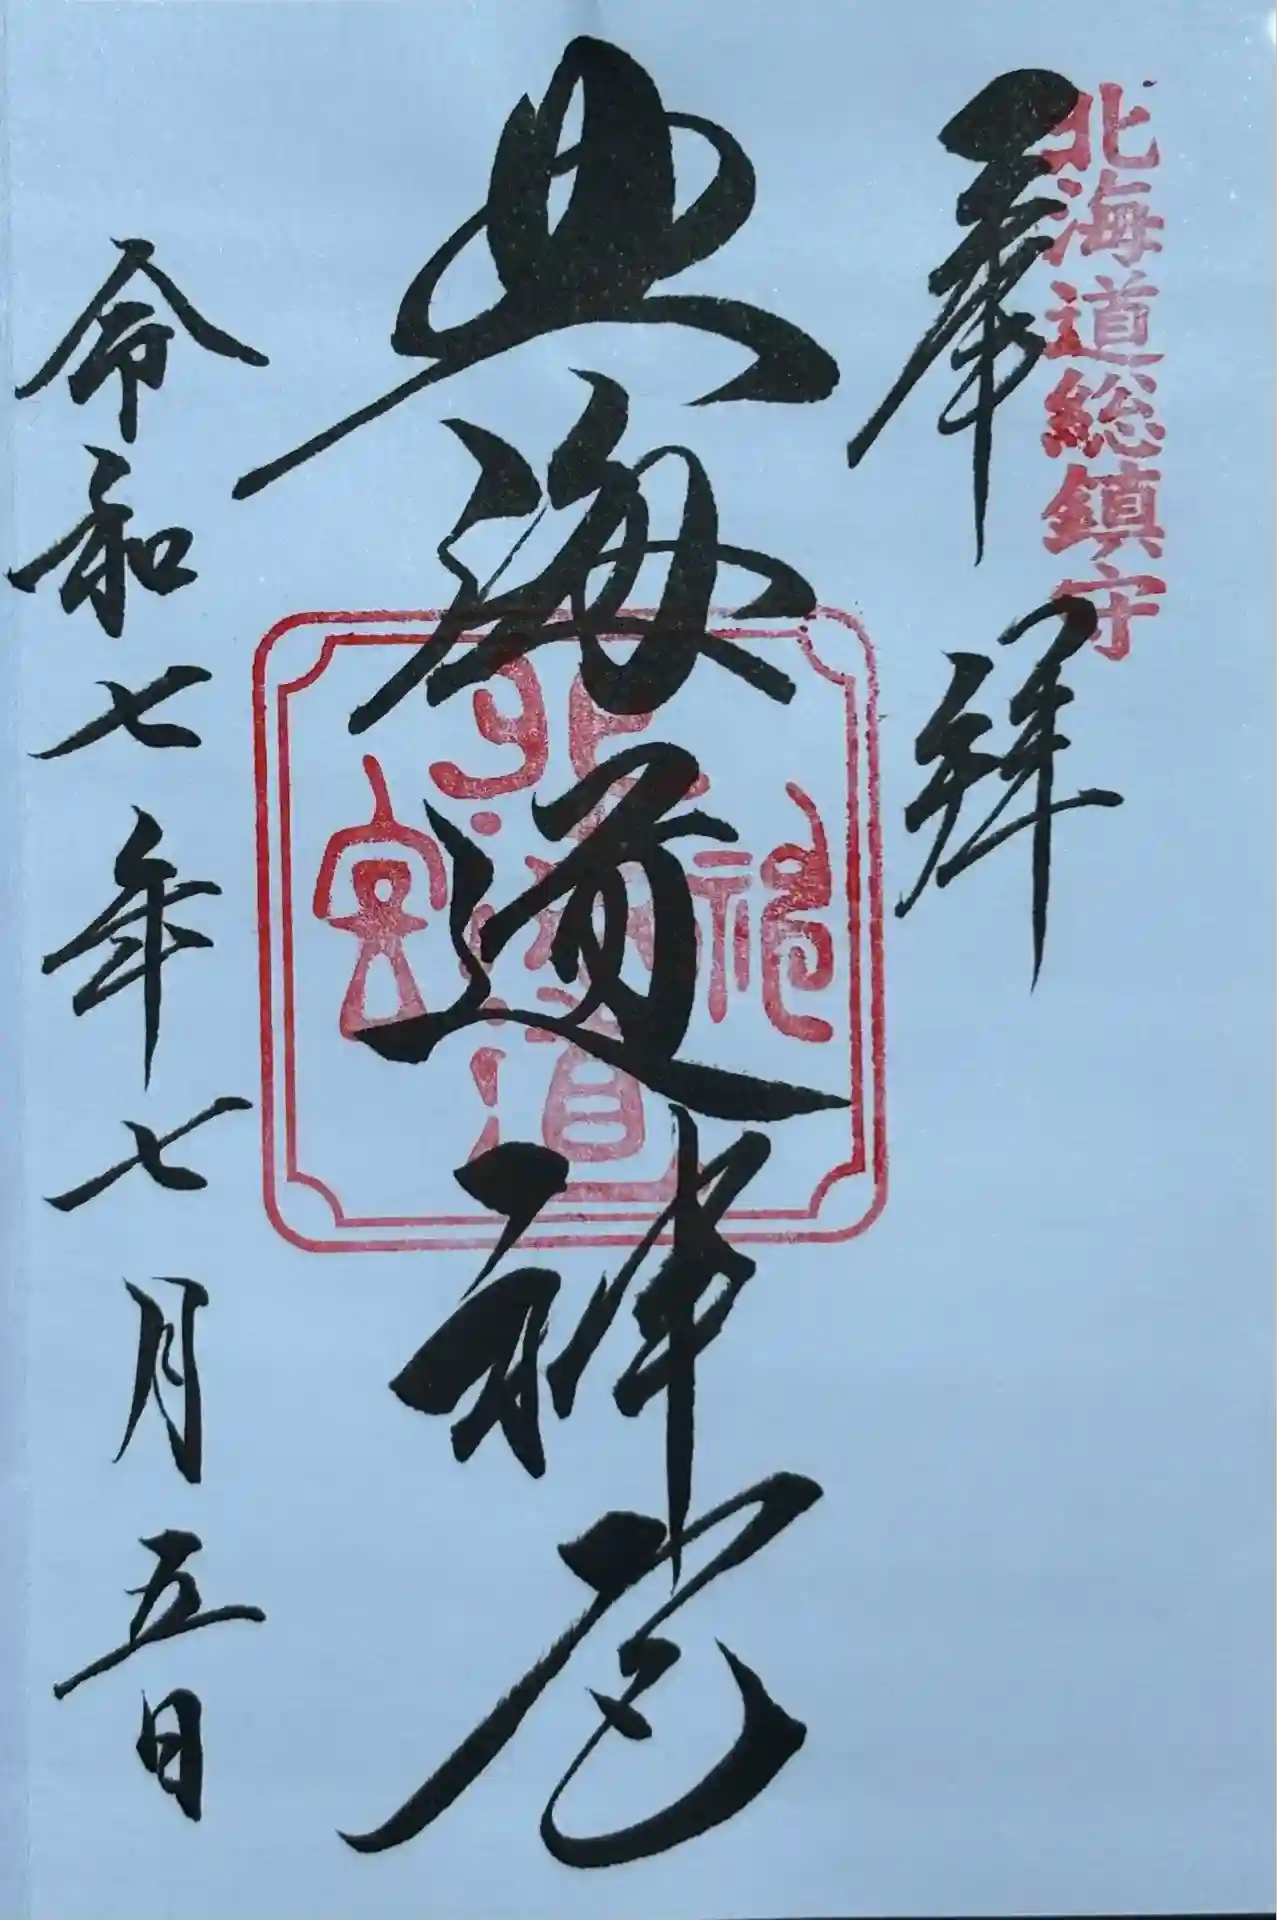 北海道総鎮守
奉拝
北海道神宮
北海道
神宮
令和七年七月五日